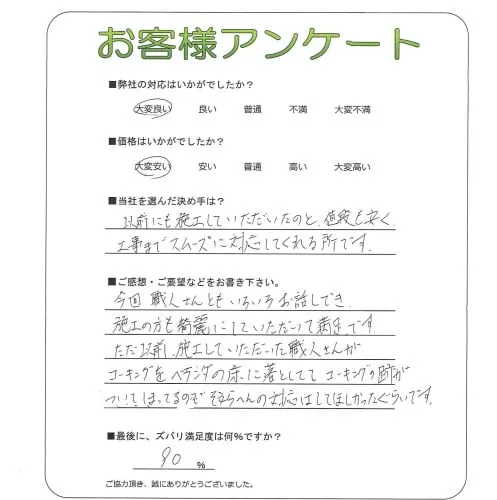 お客様アンケート
■弊社の対応はいかがでしたか？
大変良い 良い 普通 不満 大変不満
■価格はいかがでしたか？
大変安い 安い 普通 高い 大変高い
■当社を選んだ決め手は？
以前にも施工していただいたのと、値段も安く、
工事までスムーズに対応してくれる所です。
■ご感想・ご要望などをお書き下さい。
今回 職人さんともいろいろお話しでき、
施工の方も綺麗にしていただいて満足です。
ただ以前、施工していただいた職人さんが
コーキングをベランダの床に落としてて コーキングの跡が
ついてしまってるので そこらへんの対応はしてほしかったぐらいです。
■最後に、ズバリ満足度は何％ですか？
90 %
ご協力頂き、誠にありがとうございました。